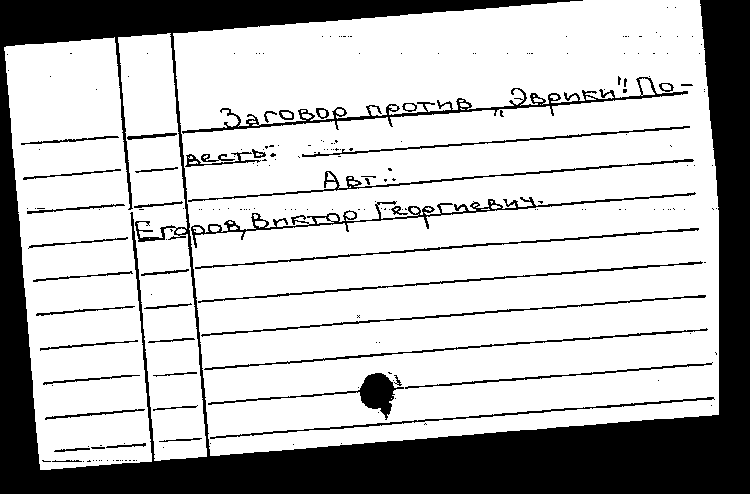 Заговор против „Эврики“! По-
весть.
Авт.:
Егоров, Виктор Георгиевич.